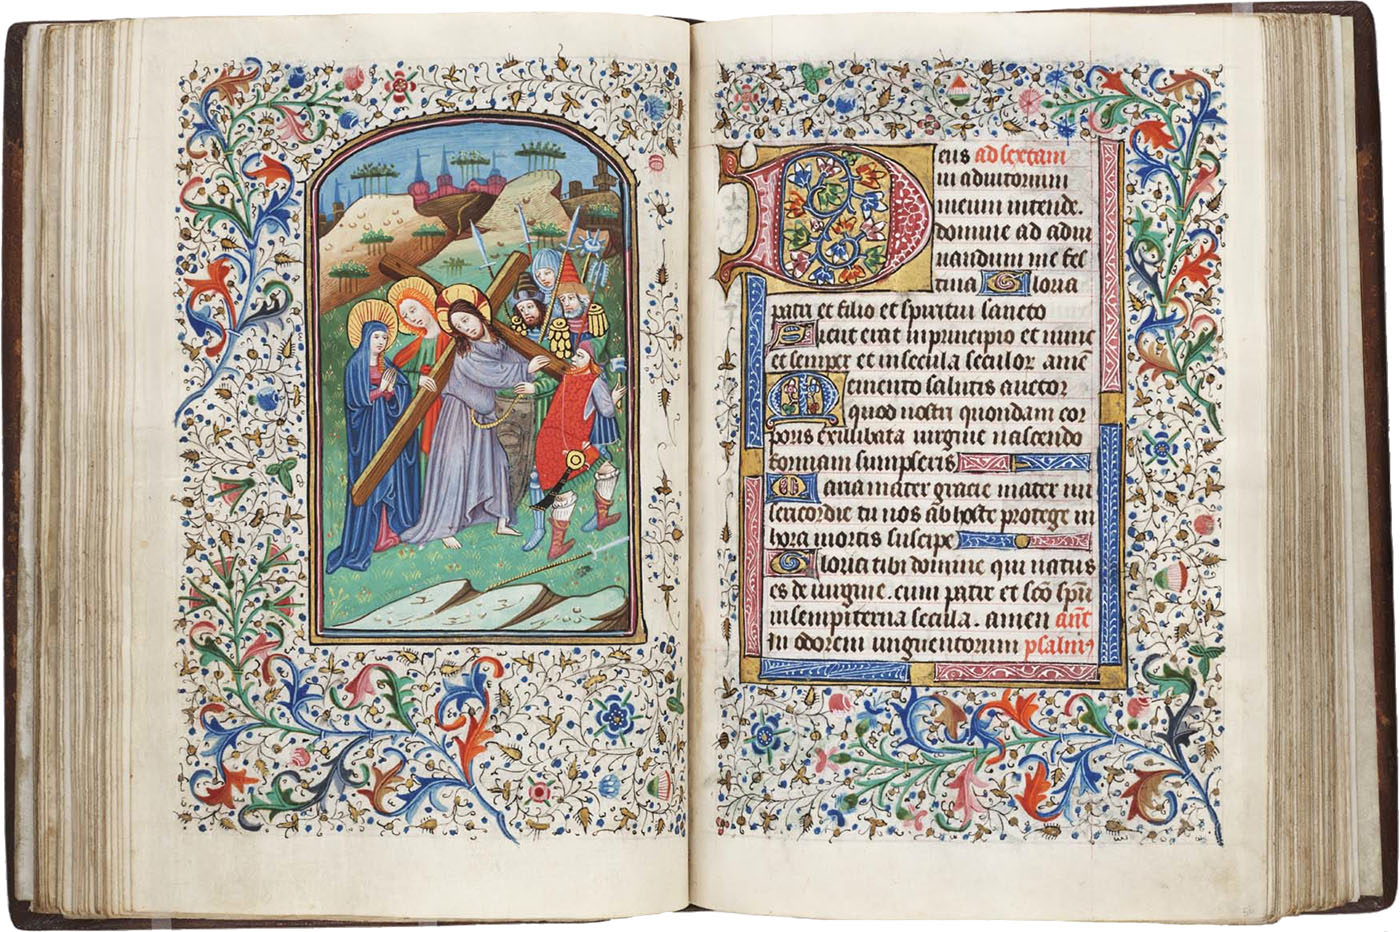 Deus ad sextam
in adiutorium
meum intende.
domine ad adiu
uandum me fes
tina Gloria
patri et filio et spiritui sancto
Sicut erat in principio et nunc
et semper et in secula seculor amen
Memento salutis auctor
quod nostri quondam cor
poris ex illibata uirgine nascendo
formam sumpseris
Maria mater gracie mater mi
sericordie tu nos ab hoste protege in
hora mortis suscipe
Gloria tibi domine qui natus
es de uirgine. cum patre et sco spu
in sempiterna secula. amen ant
In odorem unguentorum psalmꝰ